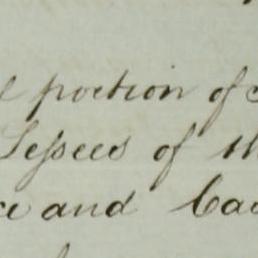 portion of
Lessees of th
ce and Ca